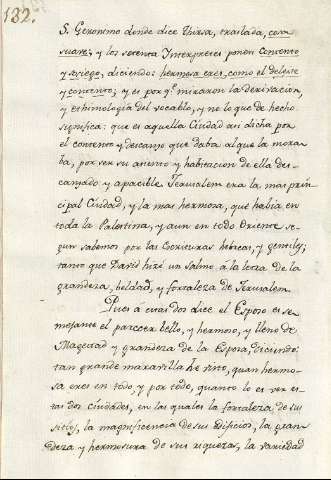 182.
S. Geronimo donde dice Thirsa, traslada, cosa
suave; y los setenta Interpretes ponen Contento
y sosiego, diciendo: hermosa eres, como el deleite
y contento; y es por q.e miraron la derivación,
y ethimologia del vocablo, y no lo que de hecho
significa: que es aquella Ciudad asi dicha por
el contento y descanso que daba al que la mora
ba, por ver su asiento y habitacion de ella des-
cansado y apacible. Jerusalem era la mas prin
cipal Ciudad, y la mas hermosa, que habia en
toda la Palestina, y aun en todo Oriente se-
gun sabemos por las Escrituras hebreas, y gentiles;
tanto que David hizo un Salmo á la letra de la
grandeza, beldad, y fortaleza de Jerusalem.
Pues á estas dos dice el Esposo es se-
mejante el parecer bello, y hermoso, y lleno de
Magestad y grandeza de la Esposa, diciendo:
tan grande maravilla he visto, quan hermo-
sa eres en todo y por todo, quanto lo es ver es
tas dos ciudades, en las quales la fortaleza de sus
sitios, la magnificencia de sus edificios, la gran
deza y hermosura de sus riquezas, la variedad